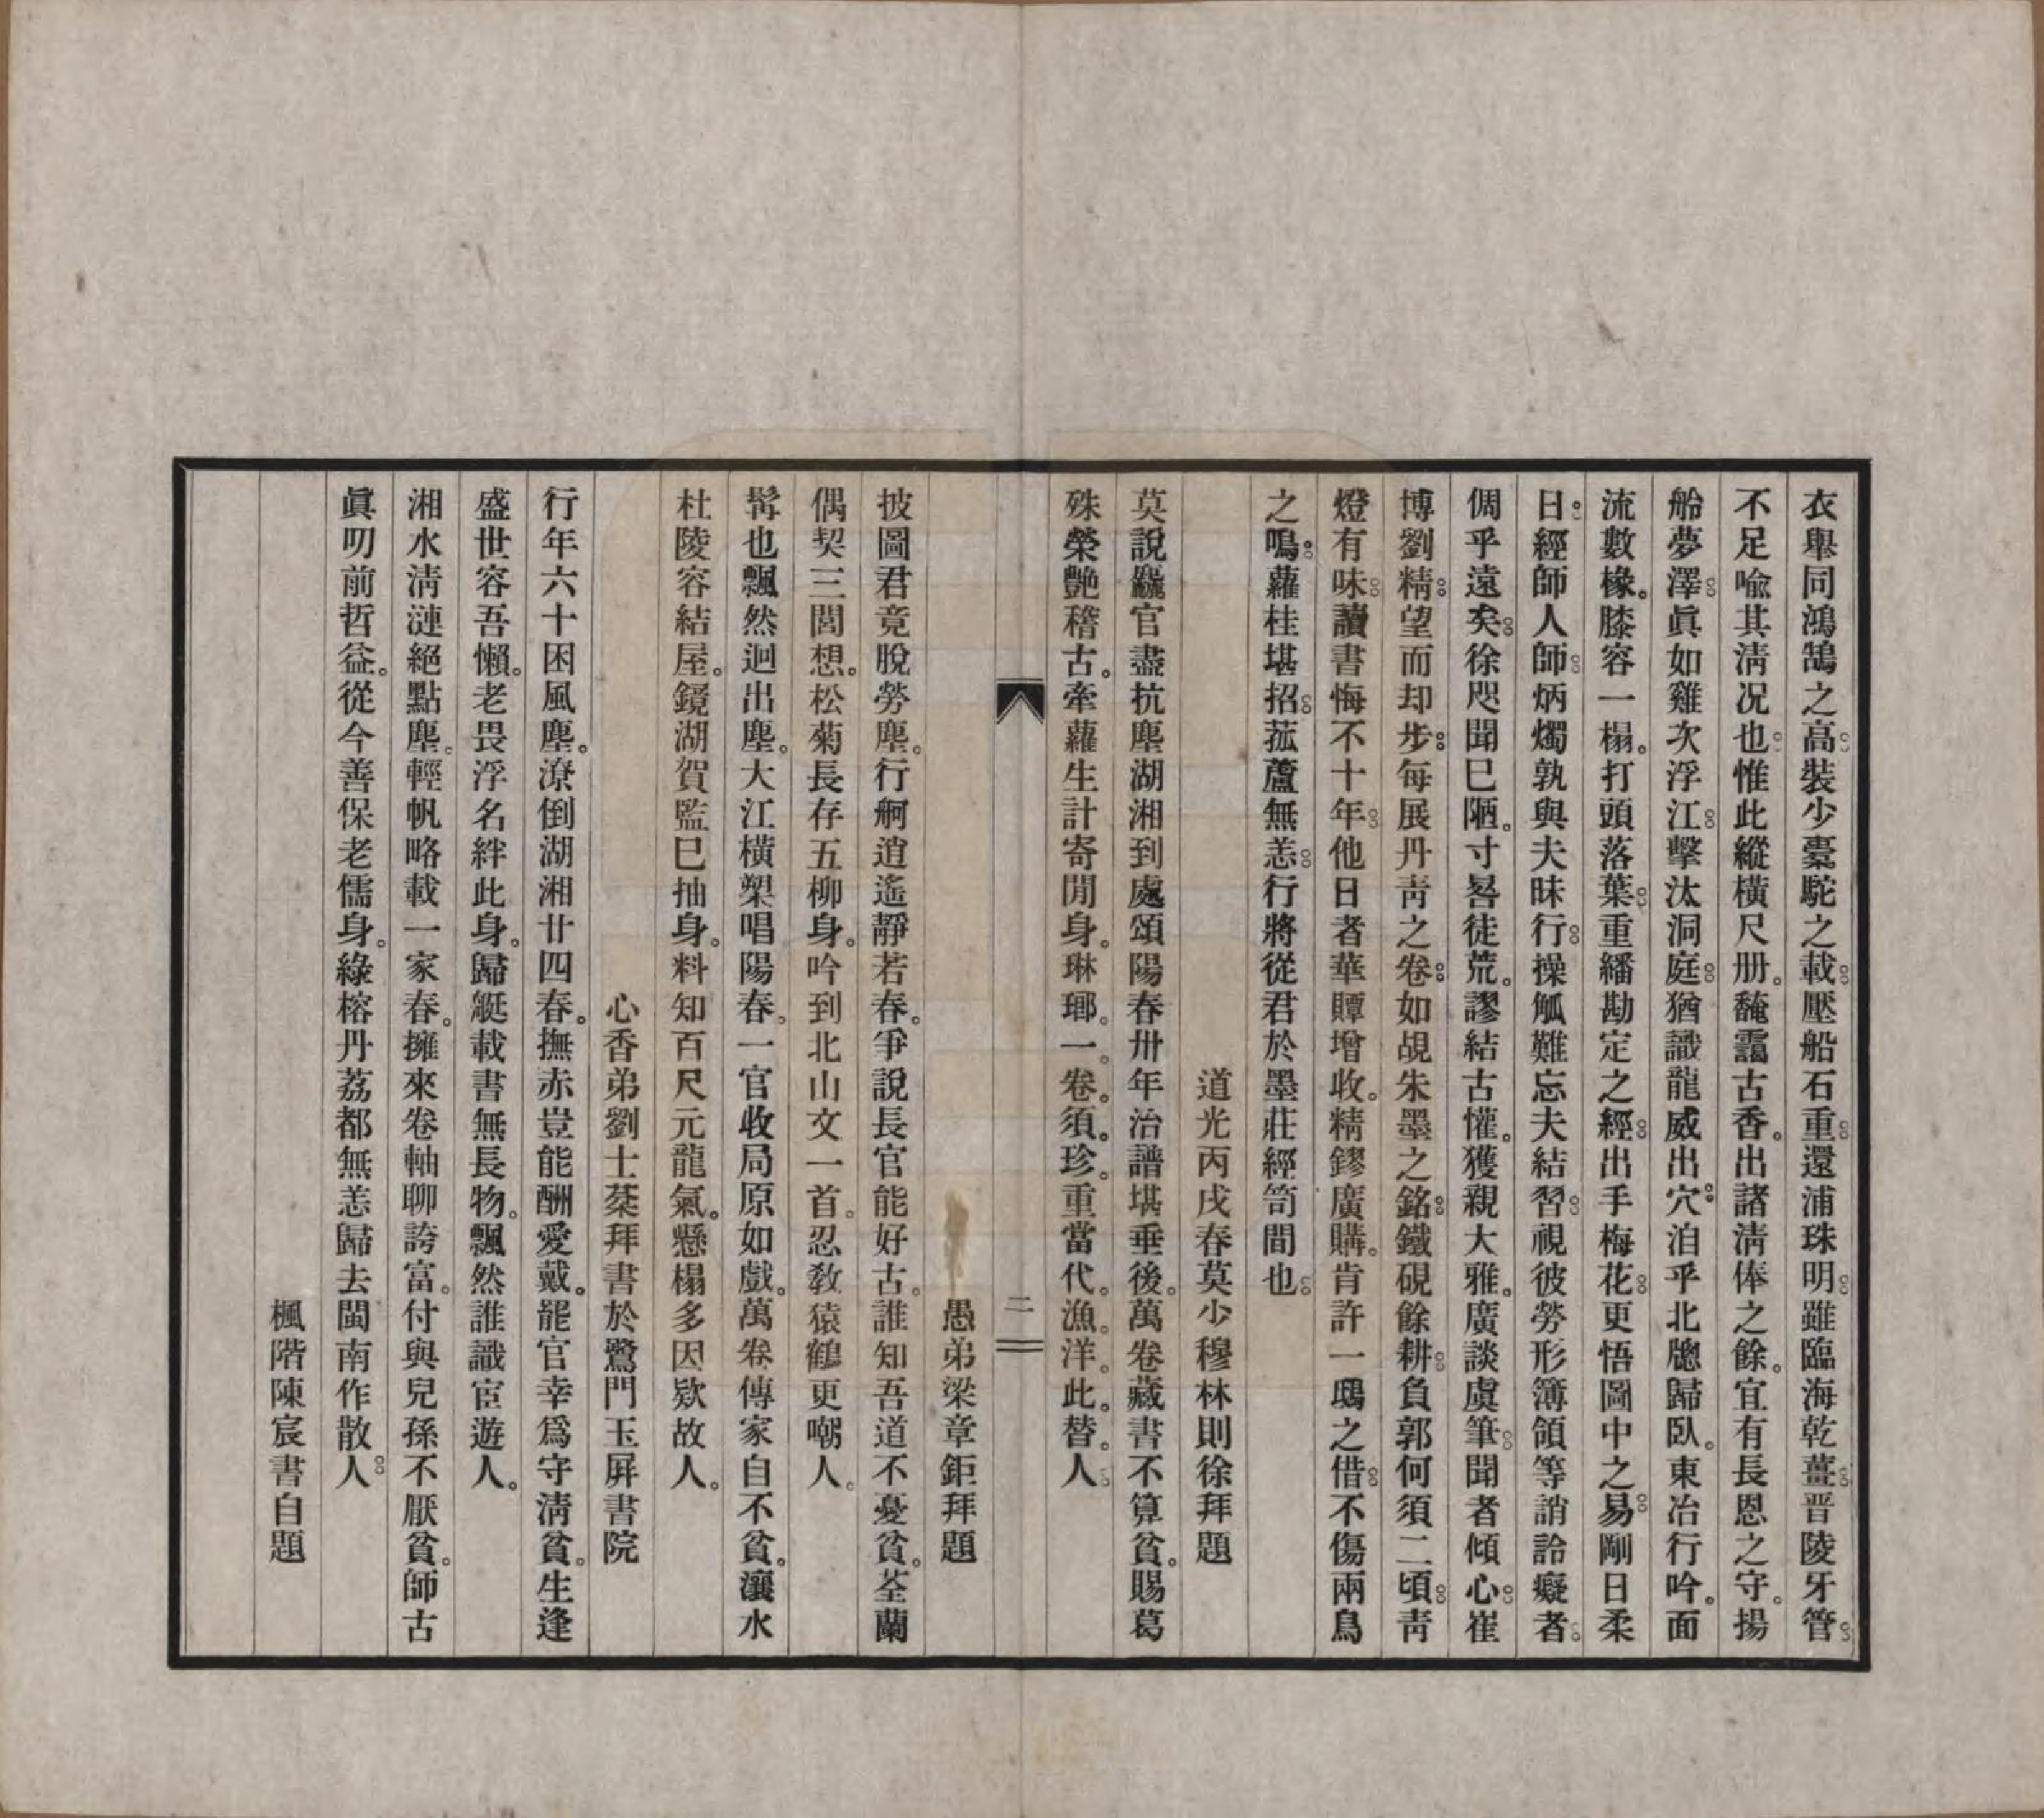 衣舉同鴻鵠之高裝少槖駝之載壓船石重還浦珠明雖臨海乾薑晋陵牙管
不足喩其淸况也惟此縱橫尺册馣靄古香出諸淸俸之餘宜有長恩之守揚
舲夢澤眞如雞次浮江擊汰洞庭猶識龍威出穴洎乎北牕歸臥東冶行吟面
流數椽膝容一榻打頭落葉重繙勘定之經出手梅花更悟圖中之易剛日柔
日經師人師炳燭孰與夫昧行操觚難忘夫結習視彼勞形簿領等誚詅癡者
倜乎遠矣徐咫聞巳陋寸晷徒荒謬結古懽獲親大雅廣談虞筆聞者傾心崔
博劉精望而却步每展丹靑之卷如覘朱墨之銘鐵硯餘耕負郭何須二頃靑
燈有味讀書悔不十年他日者華贉增收精鏐廣購肯許一鴟之借不傷兩鳥
之鳴蘿桂堪招菰蘆無恙行將從君於墨莊經笥間也
道光丙戌春莫少穆林則徐拜題
莫說麤官盡抗塵湖湘到處頌陽春卅年治譜堪垂後萬卷藏書不算貧賜葛
殊榮艷稽古牽蘿生計寄閒身琳瑯一卷須珍重當代漁洋此替人
二
愚弟梁章鉅拜題
披圖君竟脫勞塵行舸逍遙靜若春爭說長官能好古誰知吾道不憂貧荃蘭
偶契三閭想松菊長存五柳身吟到北山文一首忍敎猿鶴更嘲人
髯也飄然迥出塵大江橫槊唱陽春一官收局原如戲萬卷傳家自不貧瀼水
杜陵容結屋鏡湖賀監巳抽身料知百尺元龍氣懸榻多因欵故人
心香弟劉士棻拜書於鷺門玉屛書院
行年六十困風塵潦倒湖湘廿四春撫赤豈能酬愛戴罷官幸爲守淸貧生逢
盛世容吾懶老畏浮名絆此身歸艇載書無長物飄然誰識宦遊人
湘水淸漣絕點塵輕帆略載一家春擁來卷軸聊誇富付與兒孫不厭貧師古
眞叨前哲益從今善保老儒身綠榕丹荔都無恙歸去閩南作散人
楓階陳宸書自題